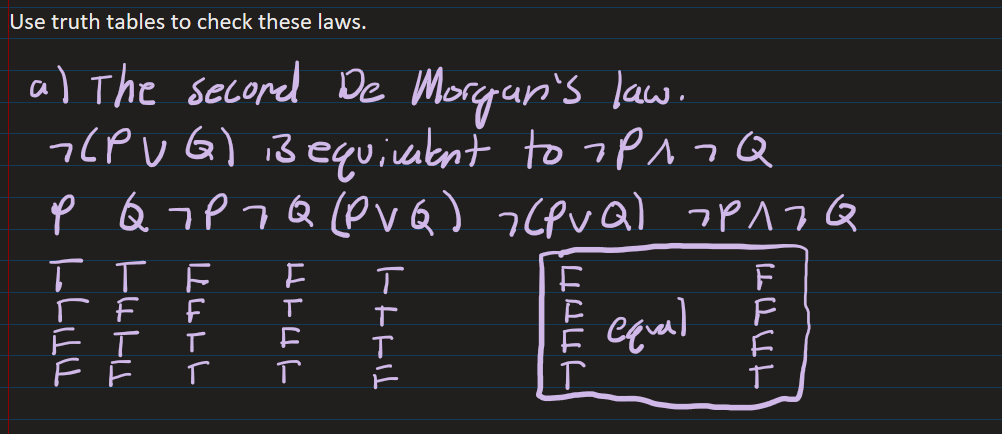 Use truth tables to check these laws.
a) The second De Morgan's law.
¬(P ∨ Q) is equivalent to ¬P ∧ ¬Q
P Q ¬P ¬Q (P∨Q) ¬(P∨Q) ¬P∧¬Q
T T F F T F F
T F F T T F F
F T T F T F F
F F T T F T T
equal